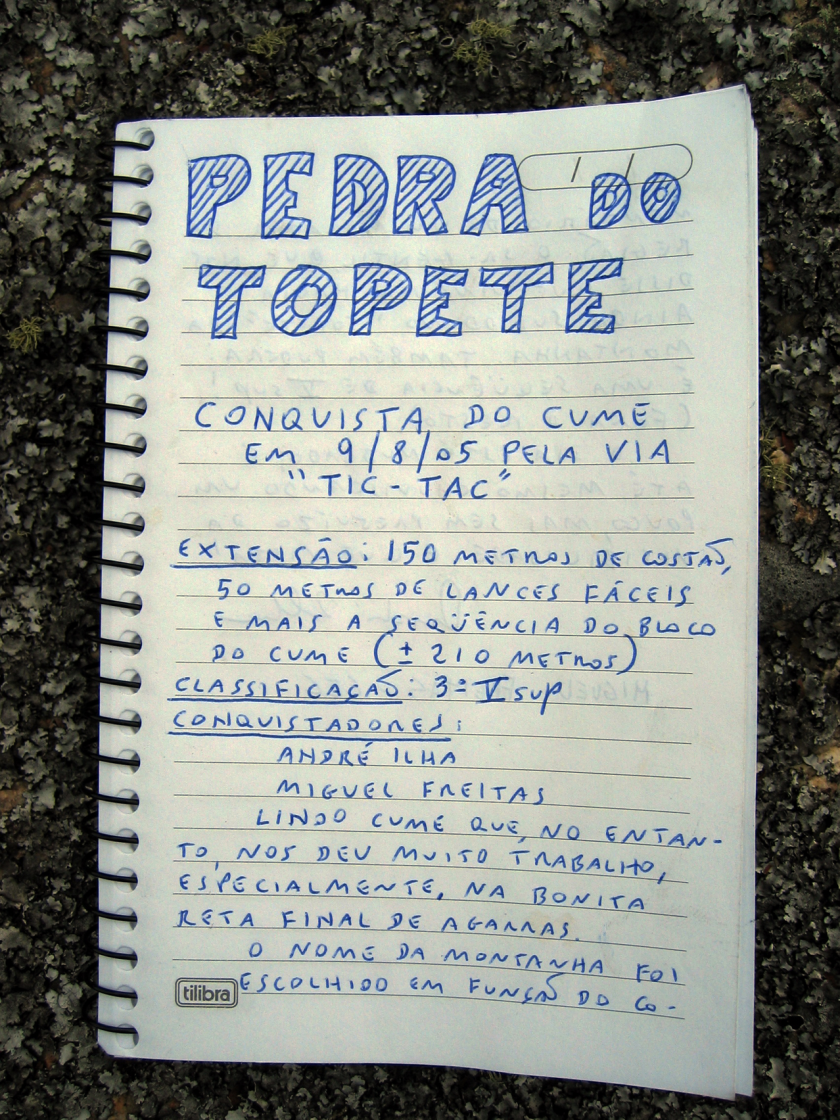 PEDRA DO
TOPETE
CONQUISTA DO CUME
EM 9/8/05 PELA VIA
"TIC-TAC"
EXTENSÃO: 150 METROS DE COSTÃO,
50 METROS DE LANCES FÁCEIS
E MAIS A SEQÜÊNCIA DO BLOCO
DO CUME (± 210 METROS)
CLASSIFICAÇÃO: 3º V sup
CONQUISTADORES:
ANDRÉ ILHA
MIGUEL FREITAS
LINDO CUME QUE, NO ENTAN-
TO, NOS DEU MUITO TRABALHO,
ESPECIALMENTE, NA BONITA
RETA FINAL DE AGARRAS.
O NOME DA MONTANHA FOI
ESCOLHIDO EM FUNÇÃO DO CO-
tilibra